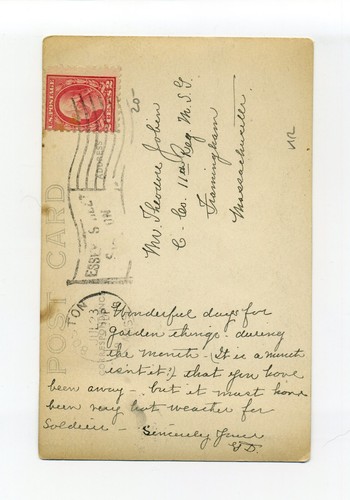 U.S. POSTAGE
CENTS 2
POST CARD
ADDRESS
20-
Mr. Theodore Jobin
C- Co. 11th Reg M.S.G
Framingham
Massachusetts.
ESSEX S
STA
TON
CORRESPONDENCE
Wonderful days for
garden things. during
the month - (It is a month
isn't it?) that you have
been away - but it must have
been very hot weather for
Soldiers - Sincerely Yours